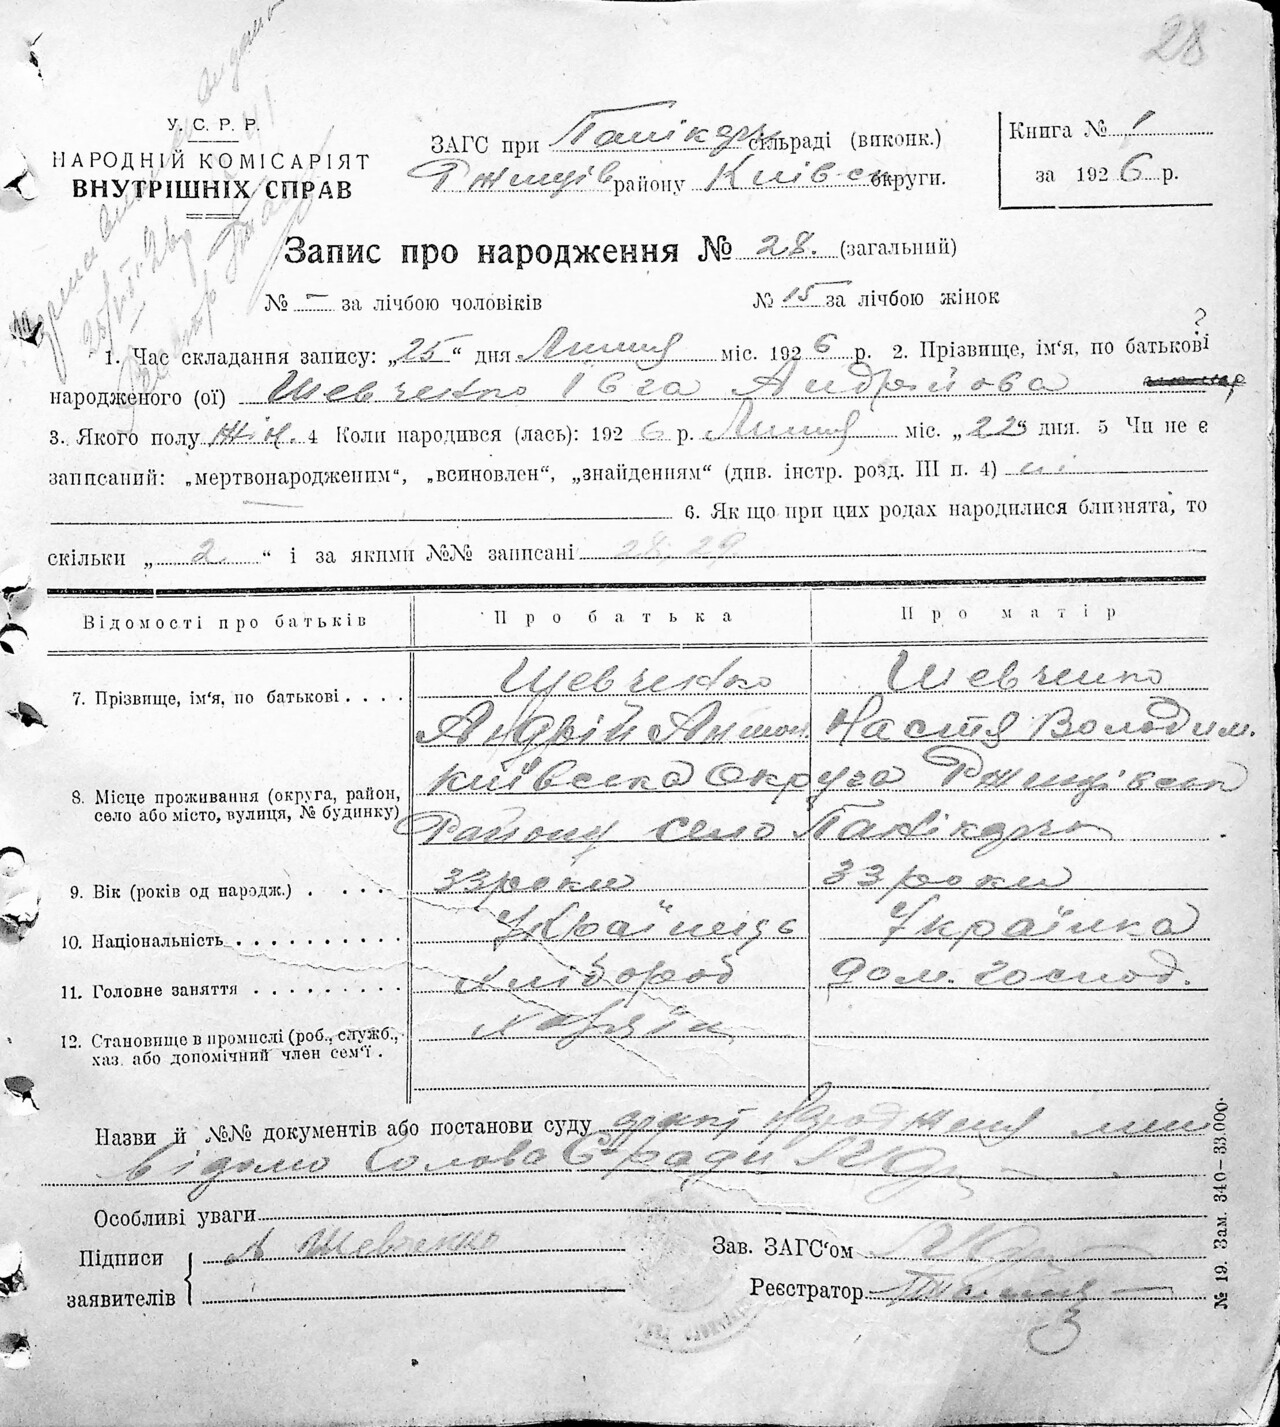 28
У. С. Р. Р.
НАРОДНІЙ КОМІСАРІЯТ
ВНУТРІШНІХ СПРАВ
ЗАГС при сільраді (виконк.)
Ржищів району Київськ округи.
Книга № 1
за 1926 р.
Запис про народження № 28. (загальний)
№ — за лічбою чоловіків № 15 за лічбою жінок
?
1. Час складання запису: „25“ дня Липня міс. 1926 р. 2. Прізвище, ім‘я, по батькові
народженого (ої) Шевченко Івга Андрейова
3. Якого полу жін. 4 Коли народився (лась): 1926 р. Липня міс. „22“ дня. 5 Чи не є
записаний: „мертвонародженим“, „всиновлен“, „знайденням“ (див. інстр. розд. III п. 4) ні
6. Як що при цих родах народилися близнята, то
скільки „2“ і за якими №№ записані 28, 29
Відомості про батьків Про батька Про матір
7. Прізвище, ім‘я, по батькові . . . . Шевченко Шевченко
Андрій Антон Настя Володим.
8. Місце проживання (округа, район, село або місто, вулиця, № будинку) Київська Округа Ржищівськ
Району село
9. Вік (років од народж.) . . . . 33 роки 33 роки
10. Національність . . . . . . . . . . Українць Українка
11. Головне заняття . . . . . . . . . Хлібороб дом. господ.
12. Становище в промислі (роб., служб., хаз. або допомічний член сем‘ї . Хазяїн
Назви й №№ документів або постанови суду
відомо Голова С/ради
Особливі уваги
Підписи А Шевченко Зав. ЗАГС‘ом
заявителів Реєстратор
№ 19. Зам. 340—33.000.